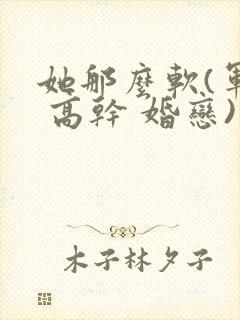 她那麼軟(軍
高幹 婚戀)
木子林夕子